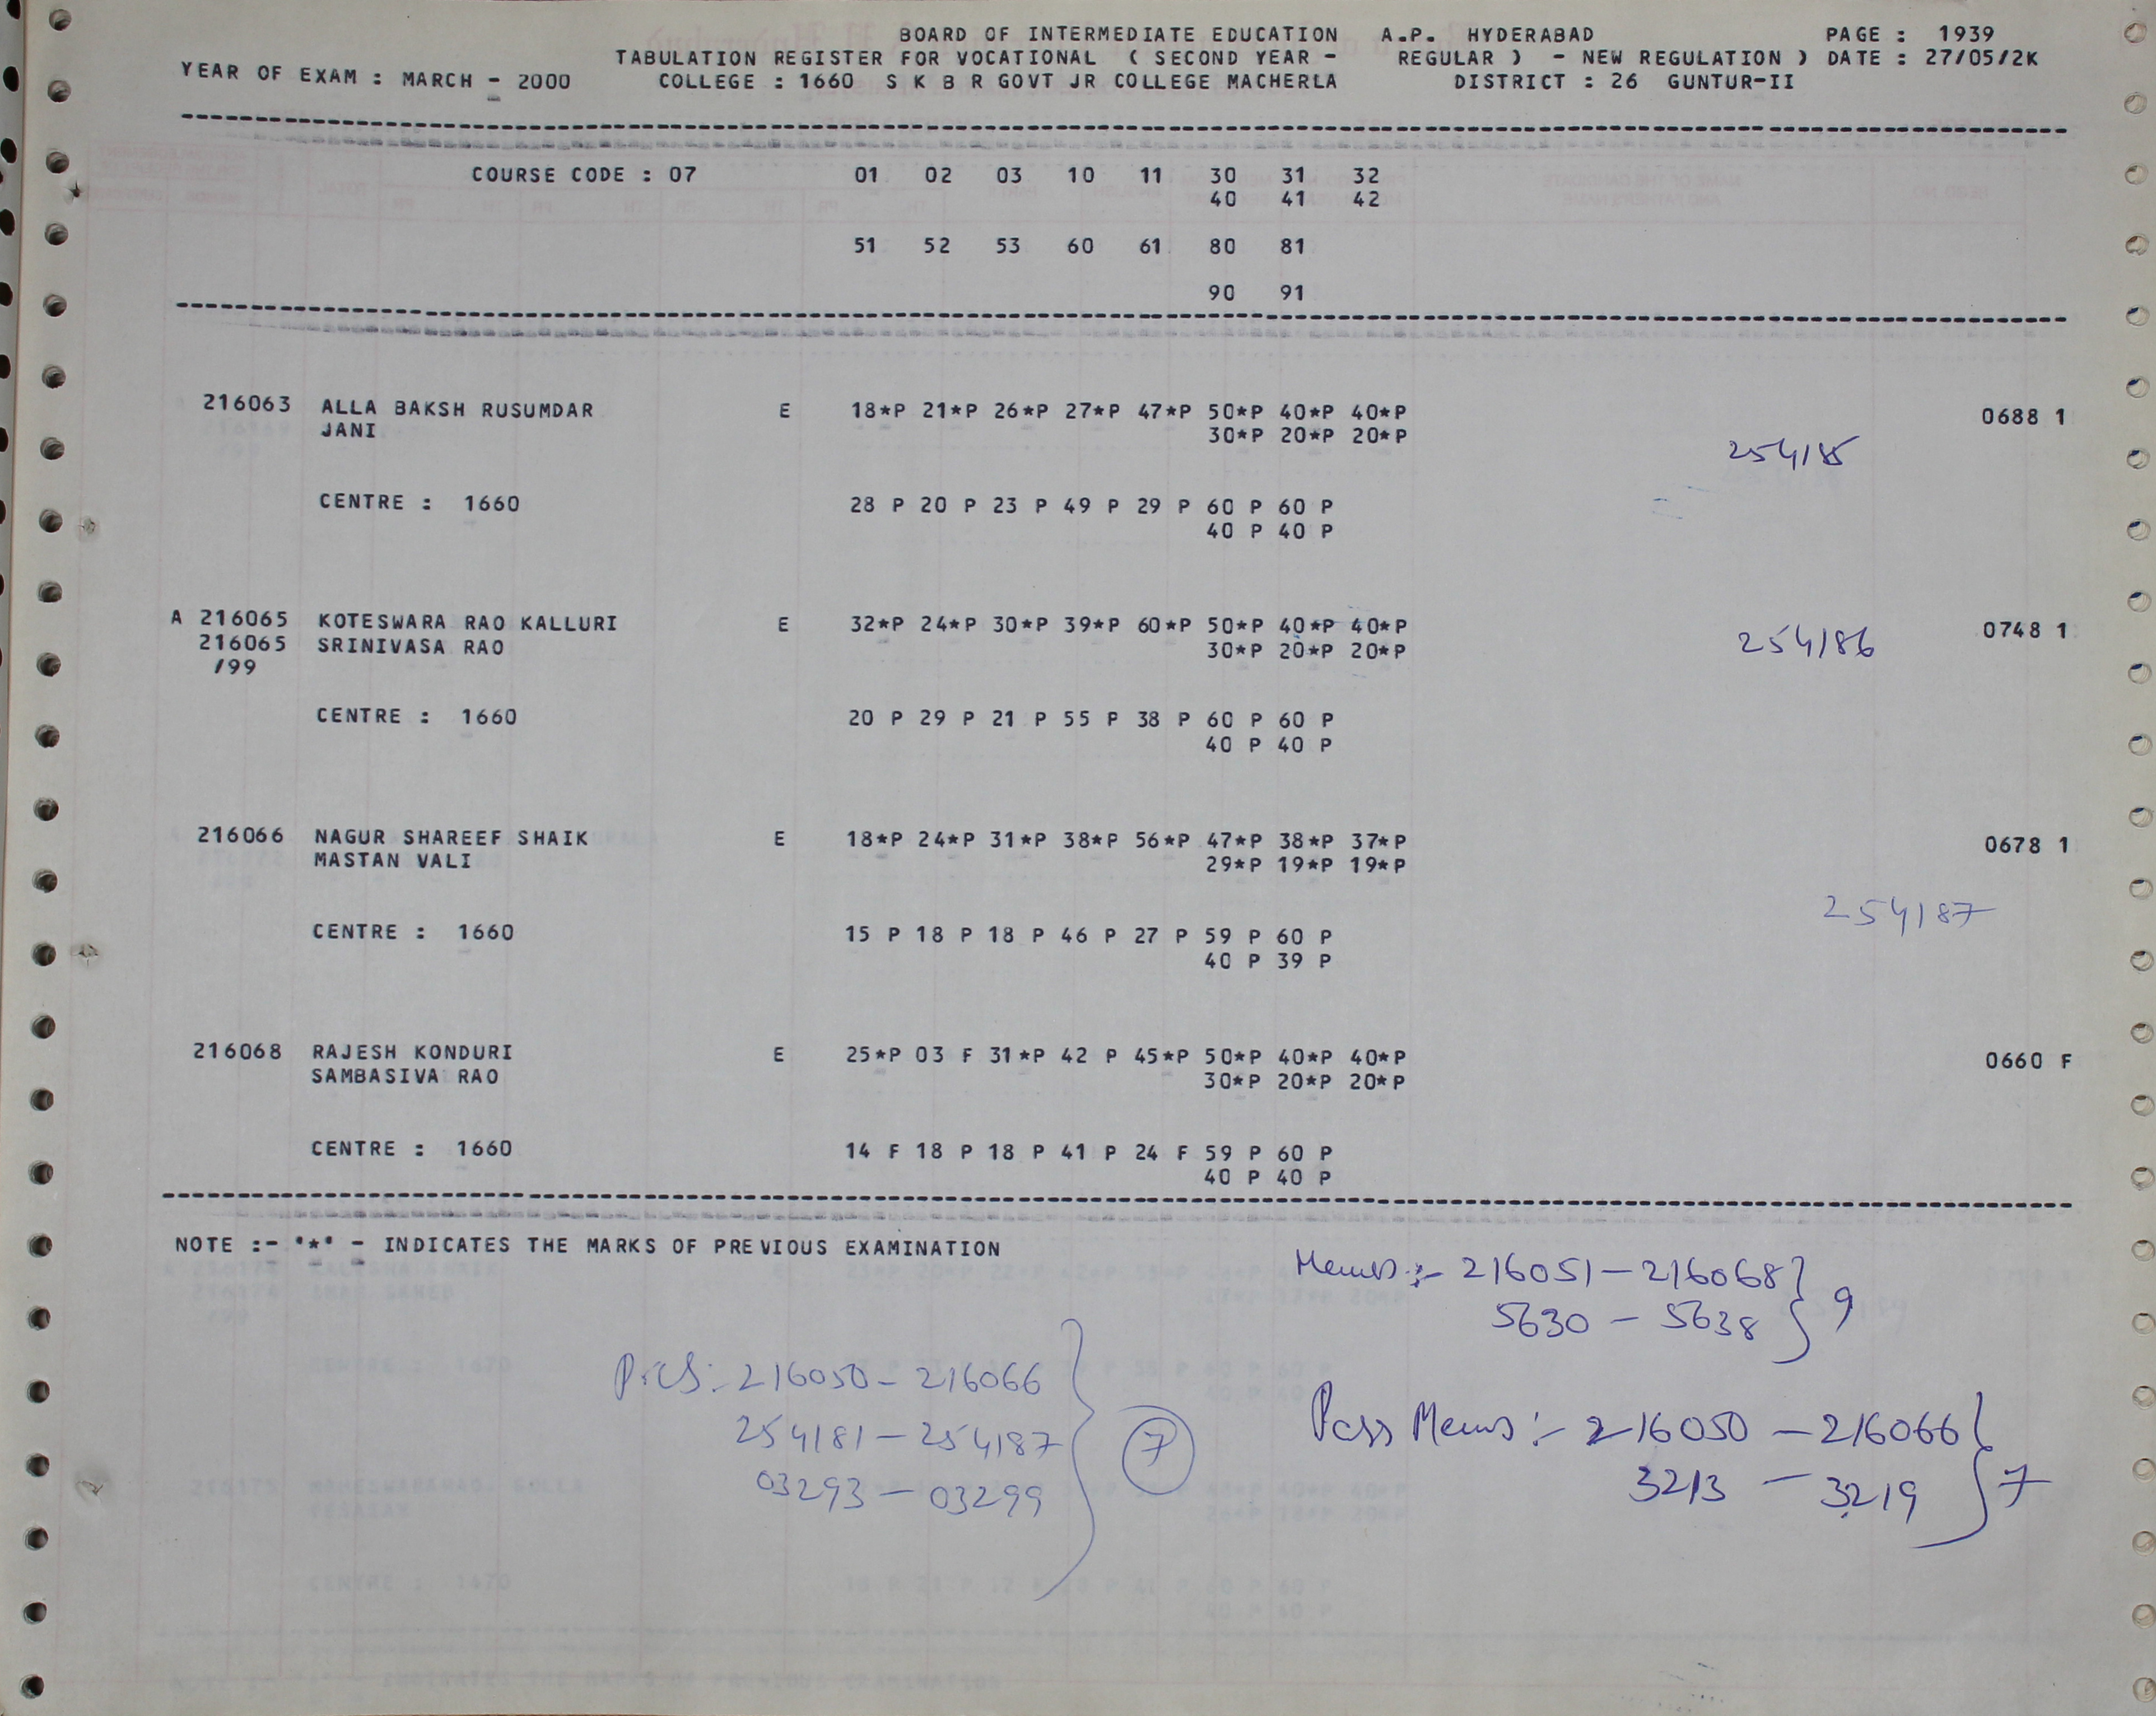 BOARD OF INTERMEDIATE EDUCATION A.P. HYDERABAD PAGE : 1939
TABULATION REGISTER FOR VOCATIONAL ( SECOND YEAR - REGULAR ) - NEW REGULATION ) DATE : 27/05/2K
YEAR OF EXAM : MARCH - 2000 COLLEGE : 1660 S K B R GOVT JR COLLEGE MACHERLA DISTRICT : 26 GUNTUR-II
COURSE CODE : 07 01 02 03 10 11 30 31 32
40 41 42
51 52 53 60 61 80 81
90 91
216063 ALLA BAKSH RUSUMDAR E 18*P 21*P 26*P 27*P 47*P 50*P 40*P 40*P 0688 1
JANI 30*P 20*P 20*P
254185
CENTRE : 1660 28 P 20 P 23 P 49 P 29 P 60 P 60 P
40 P 40 P
A 216065 KOTESWARA RAO KALLURI E 32*P 24*P 30*P 39*P 60*P 50*P 40*P 40*P 0748 1
216065 SRINIVASA RAO 30*P 20*P 20*P 254186
/99
CENTRE : 1660 20 P 29 P 21 P 55 P 38 P 60 P 60 P
40 P 40 P
216066 NAGUR SHAREEF SHAIK E 18*P 24*P 31*P 38*P 56*P 47*P 38*P 37*P 0678 1
MASTAN VALI 29*P 19*P 19*P
254187
CENTRE : 1660 15 P 18 P 18 P 46 P 27 P 59 P 60 P
40 P 39 P
216068 RAJESH KONDURI E 25*P 03 F 31*P 42 P 45*P 50*P 40*P 40*P 0660 F
SAMBASIVA RAO 30*P 20*P 20*P
CENTRE : 1660 14 F 18 P 18 P 41 P 24 F 59 P 60 P
40 P 40 P
NOTE :- '*' - INDICATES THE MARKS OF PREVIOUS EXAMINATION
Memos :- 216051 - 216068 } 9
5630 - 5638
216050 - 216066 } 7
254181 - 254187
03293 - 03299
Pass Memos :- 216050 - 216066 } 7
3213 - 3219